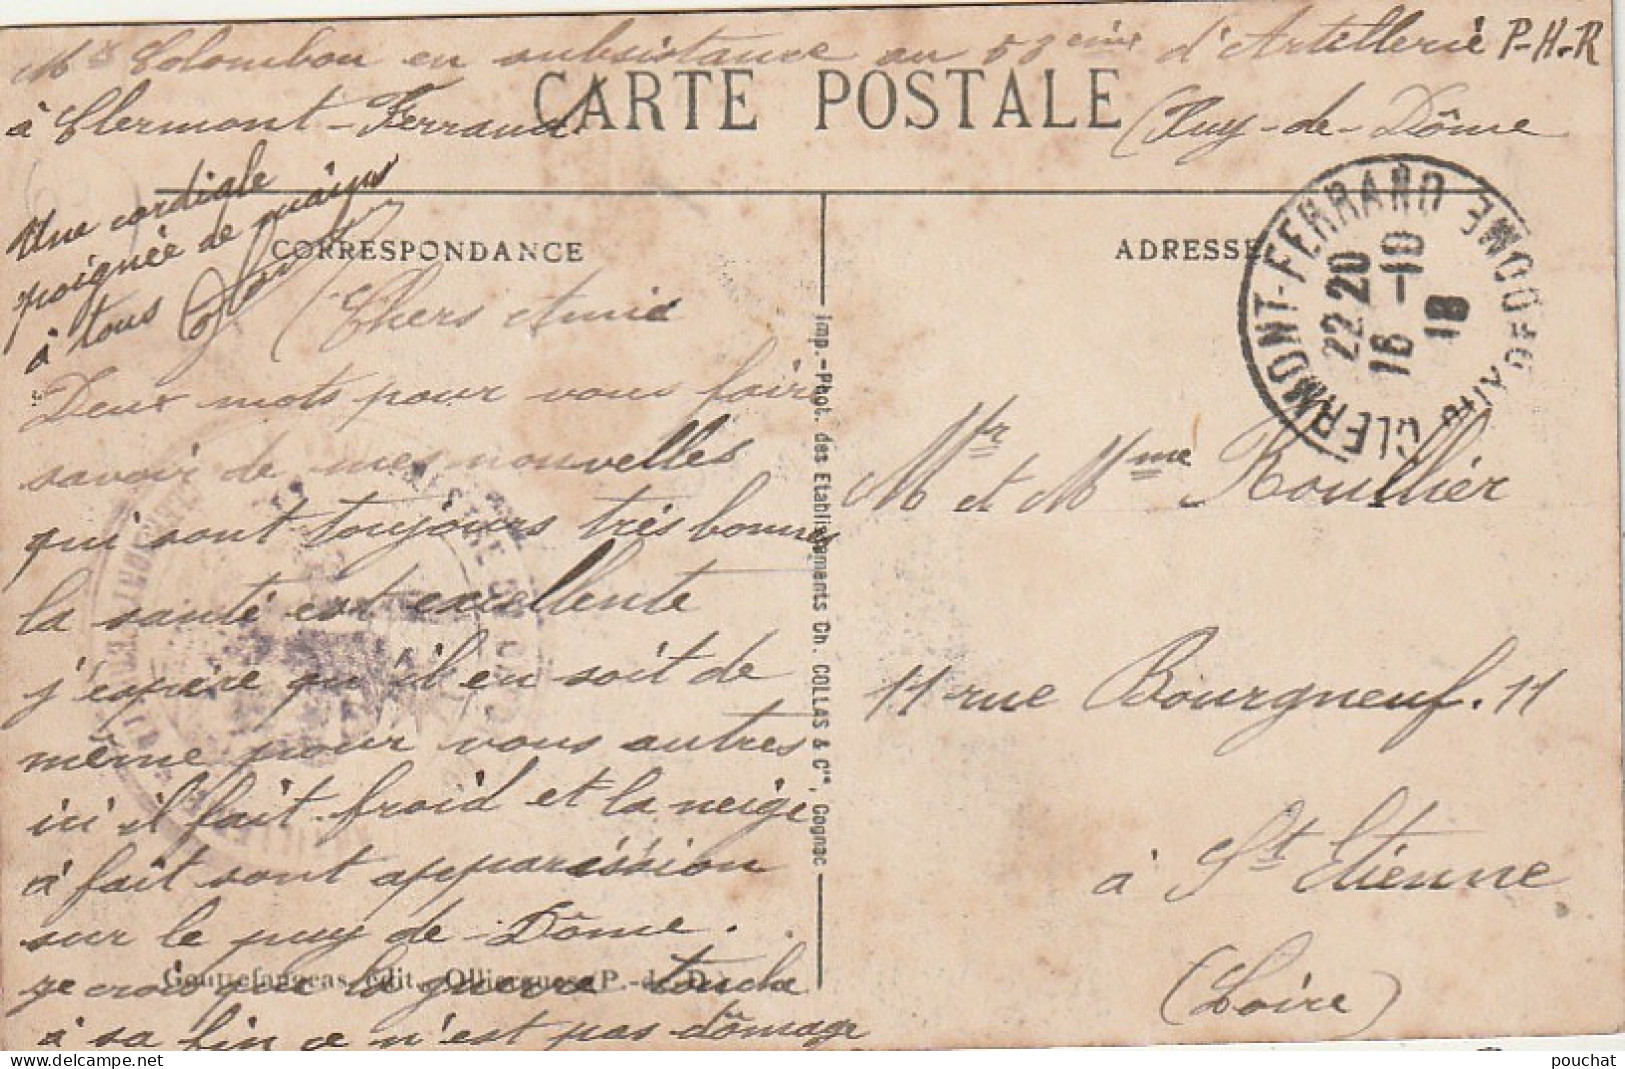 Colombon en subsistance au 53ème d'Artillerie P-H-R
à Clermont-Ferrand (Puy-de-Dôme
CARTE POSTALE
Une cordiale
poignée de mains
à tous
CORRESPONDANCE
Chers Amis
Deux mots pour vous faire
savoir de mes nouvelles
qui sont toujours très bonnes
la santé est excellente
j'espère qu'il en soit de
même pour vous autres
ici il fait froid et la neige
à fait sont apparission
sur le puy de Dôme.
je crois que la guerre touche
à sa fin ce n'est pas dômage
Imp.-Phot. des Etablissements Ch. COLLAS & Cie, Cognac
ADRESSE
CLERMONT-FERRAND
PUY DE DOME
22 20
16 -10
18
Mr et Mme Roullier
11 rue Bourgneuf. 11
à St Etienne
(Loire)
édit., Olliergues (P.-de-D.)
pouchat